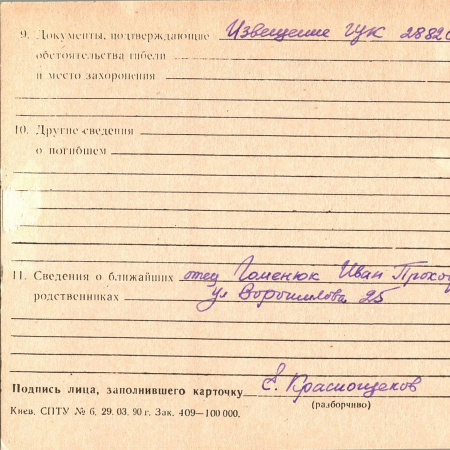 9. Документы, подтверждающие Извещение ГУК 2882
обстоятельства гибели
и место захоронения
10. Другие сведения
о погибшем
11. Сведения о ближайших отец Гоменюк Иван Прохо
родственниках ул Ворошилова 25
Подпись лица, заполнившего карточку Е. Краснощеков
(разборчиво)
Киев. СПТУ № 6. 29. 03. 90 г. Зак. 409—100 000.